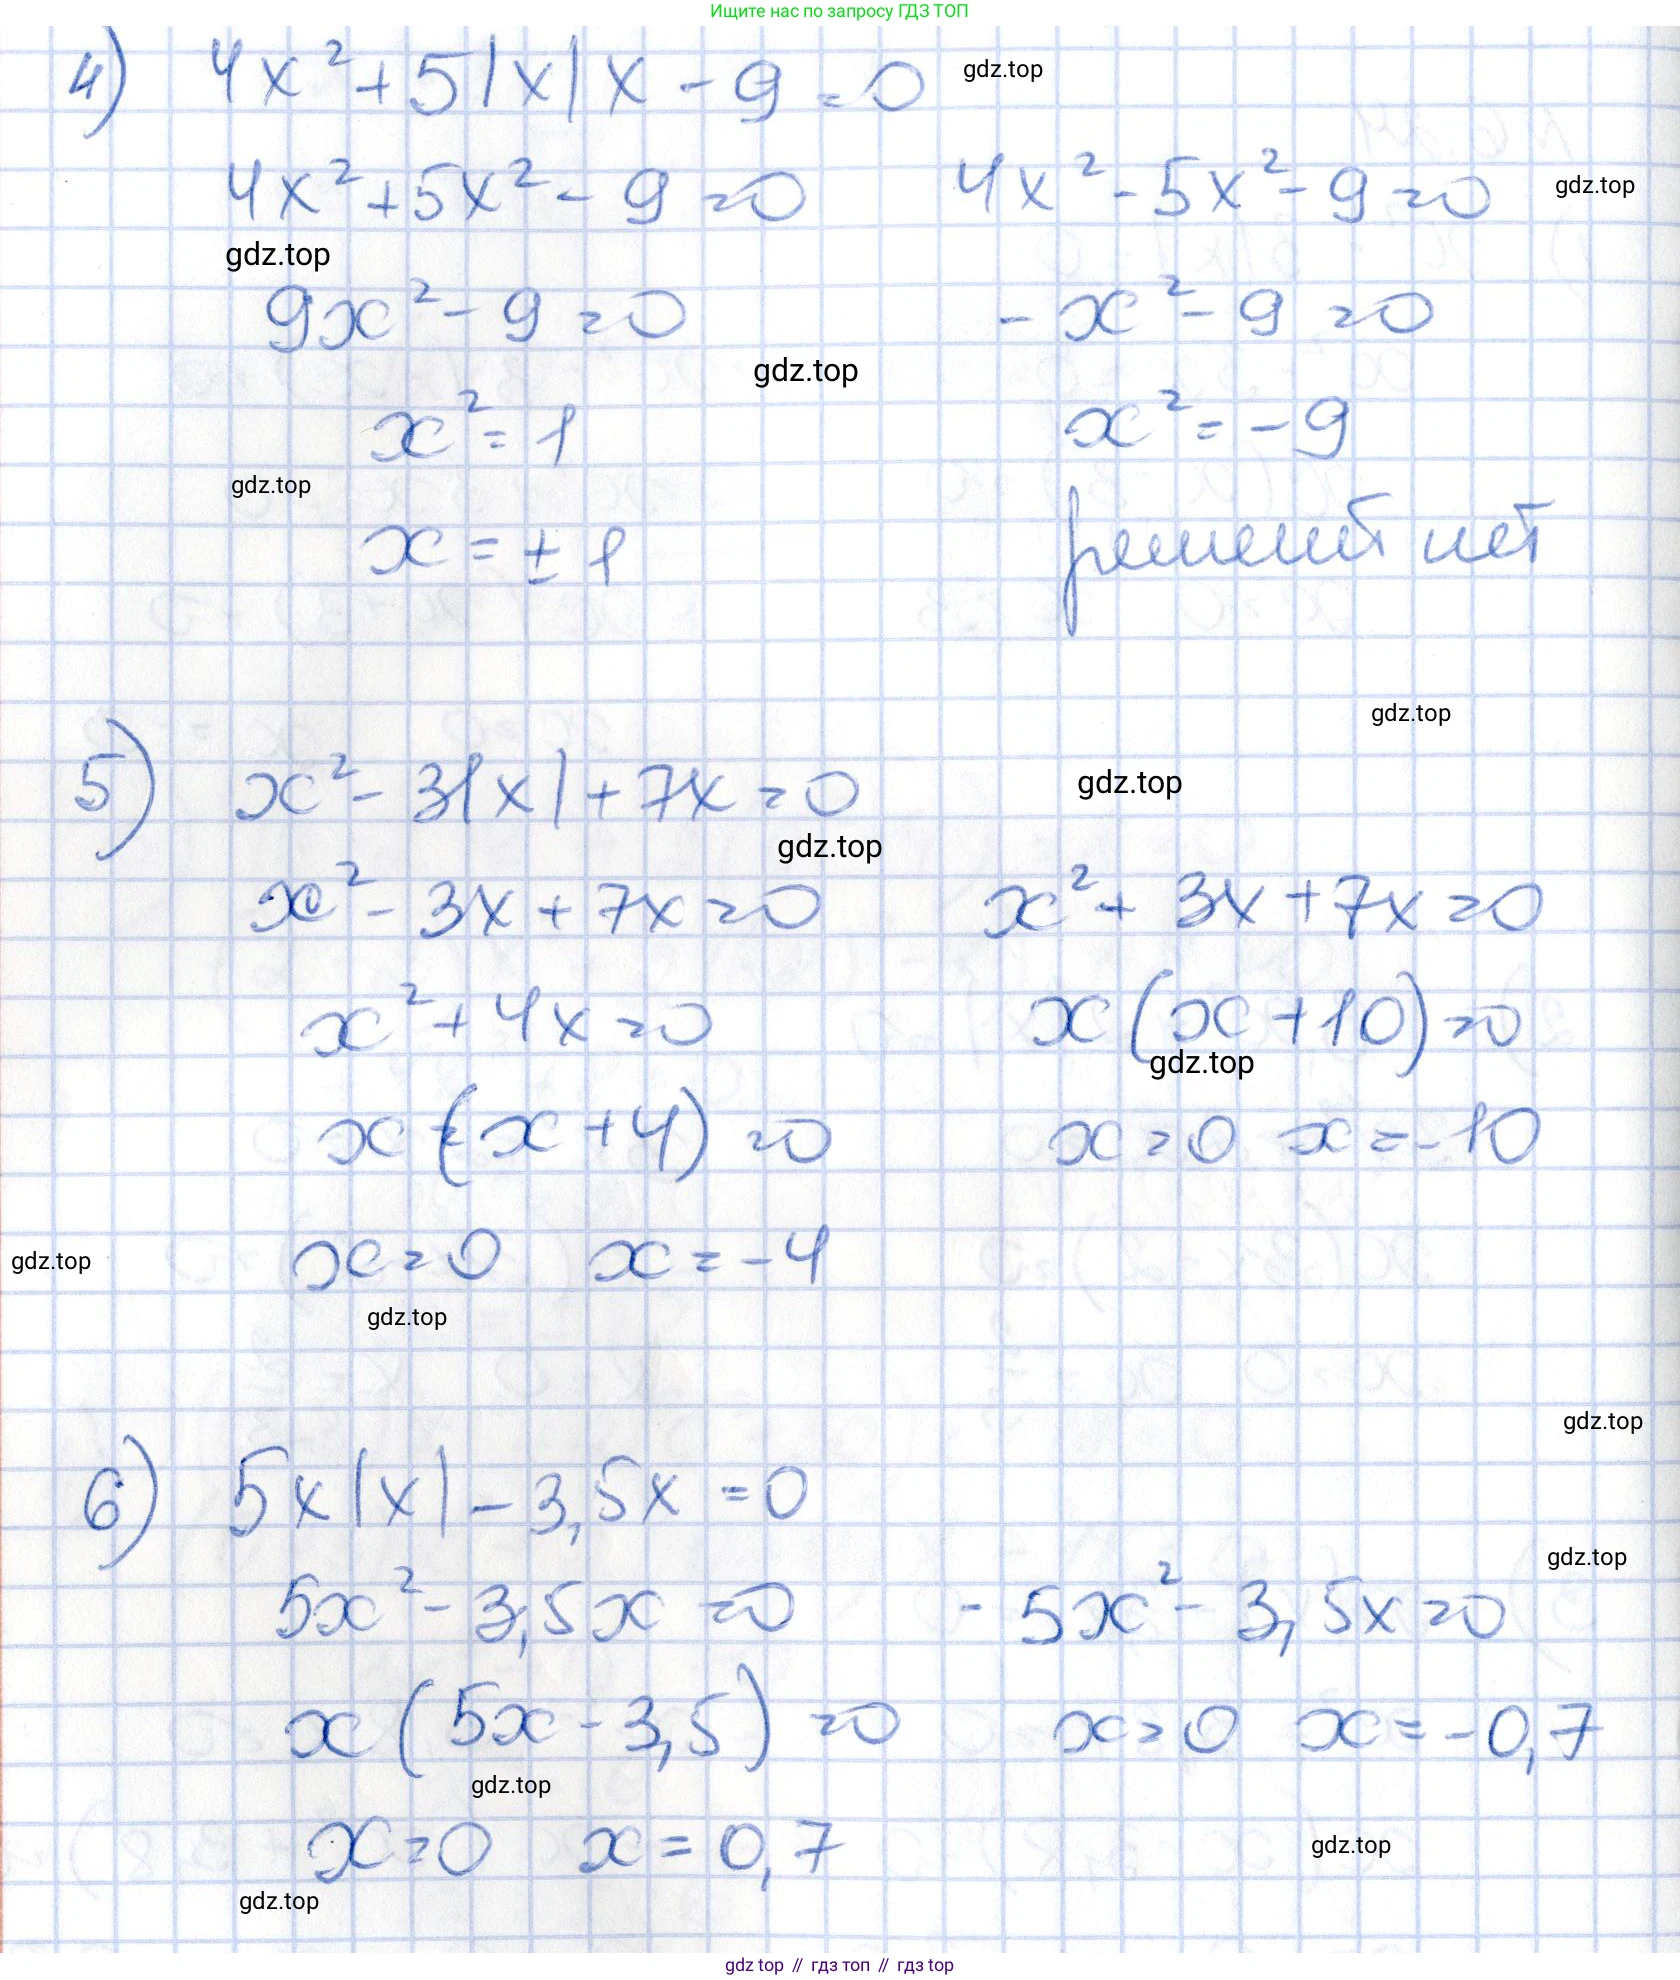 Ищите нас по запросу ГДЗ ТОП
4) 4x² + 5|x|x - 9 = 0 gdz.top
4x² + 5x² - 9 = 0 4x² - 5x² - 9 = 0 gdz.top
gdz.top
9x² - 9 = 0 - x² - 9 = 0
gdz.top
x² = 1 x² = -9
gdz.top
x = ± 1 решений нет
gdz.top
5) x² - 3|x| + 7x = 0 gdz.top
gdz.top
x² - 3x + 7x = 0 x² + 3x + 7x = 0
x² + 4x = 0 x(x + 10) = 0
gdz.top
x(x + 4) = 0 x = 0 x = -10
gdz.top x = 0 x = -4
gdz.top
gdz.top
6) 5x|x| - 3,5x = 0
gdz.top
5x² - 3,5x = 0 - 5x² - 3,5x = 0
x(5x - 3,5) = 0 x = 0 x = -0,7
gdz.top
x = 0 x = 0,7 gdz.top
gdz.top
gdz top // гдз топ // гдз top